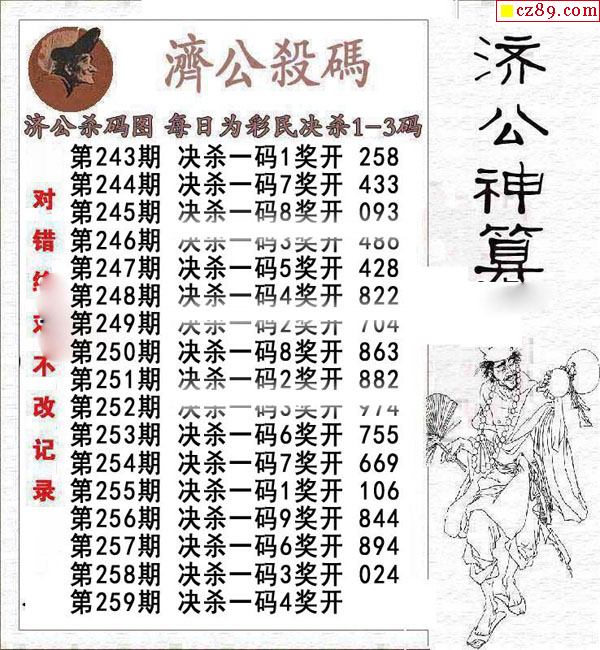 cz89.com
濟公殺碼
济公杀码图 每日为彩民决杀1-3码
第243期 决杀一码1奖开 258
第244期 决杀一码7奖开 433
第245期 决杀一码8奖开 093
第246期 决杀一码3奖开 486
第247期 决杀一码5奖开 428
第248期 决杀一码4奖开 822
第249期 决杀一码2奖开 704
第250期 决杀一码8奖开 863
第251期 决杀一码2奖开 882
第252期 决杀一码3奖开 974
第253期 决杀一码6奖开 755
第254期 决杀一码7奖开 669
第255期 决杀一码1奖开 106
第256期 决杀一码9奖开 844
第257期 决杀一码6奖开 894
第258期 决杀一码3奖开 024
第259期 决杀一码4奖开
对错不改记录
济公神算